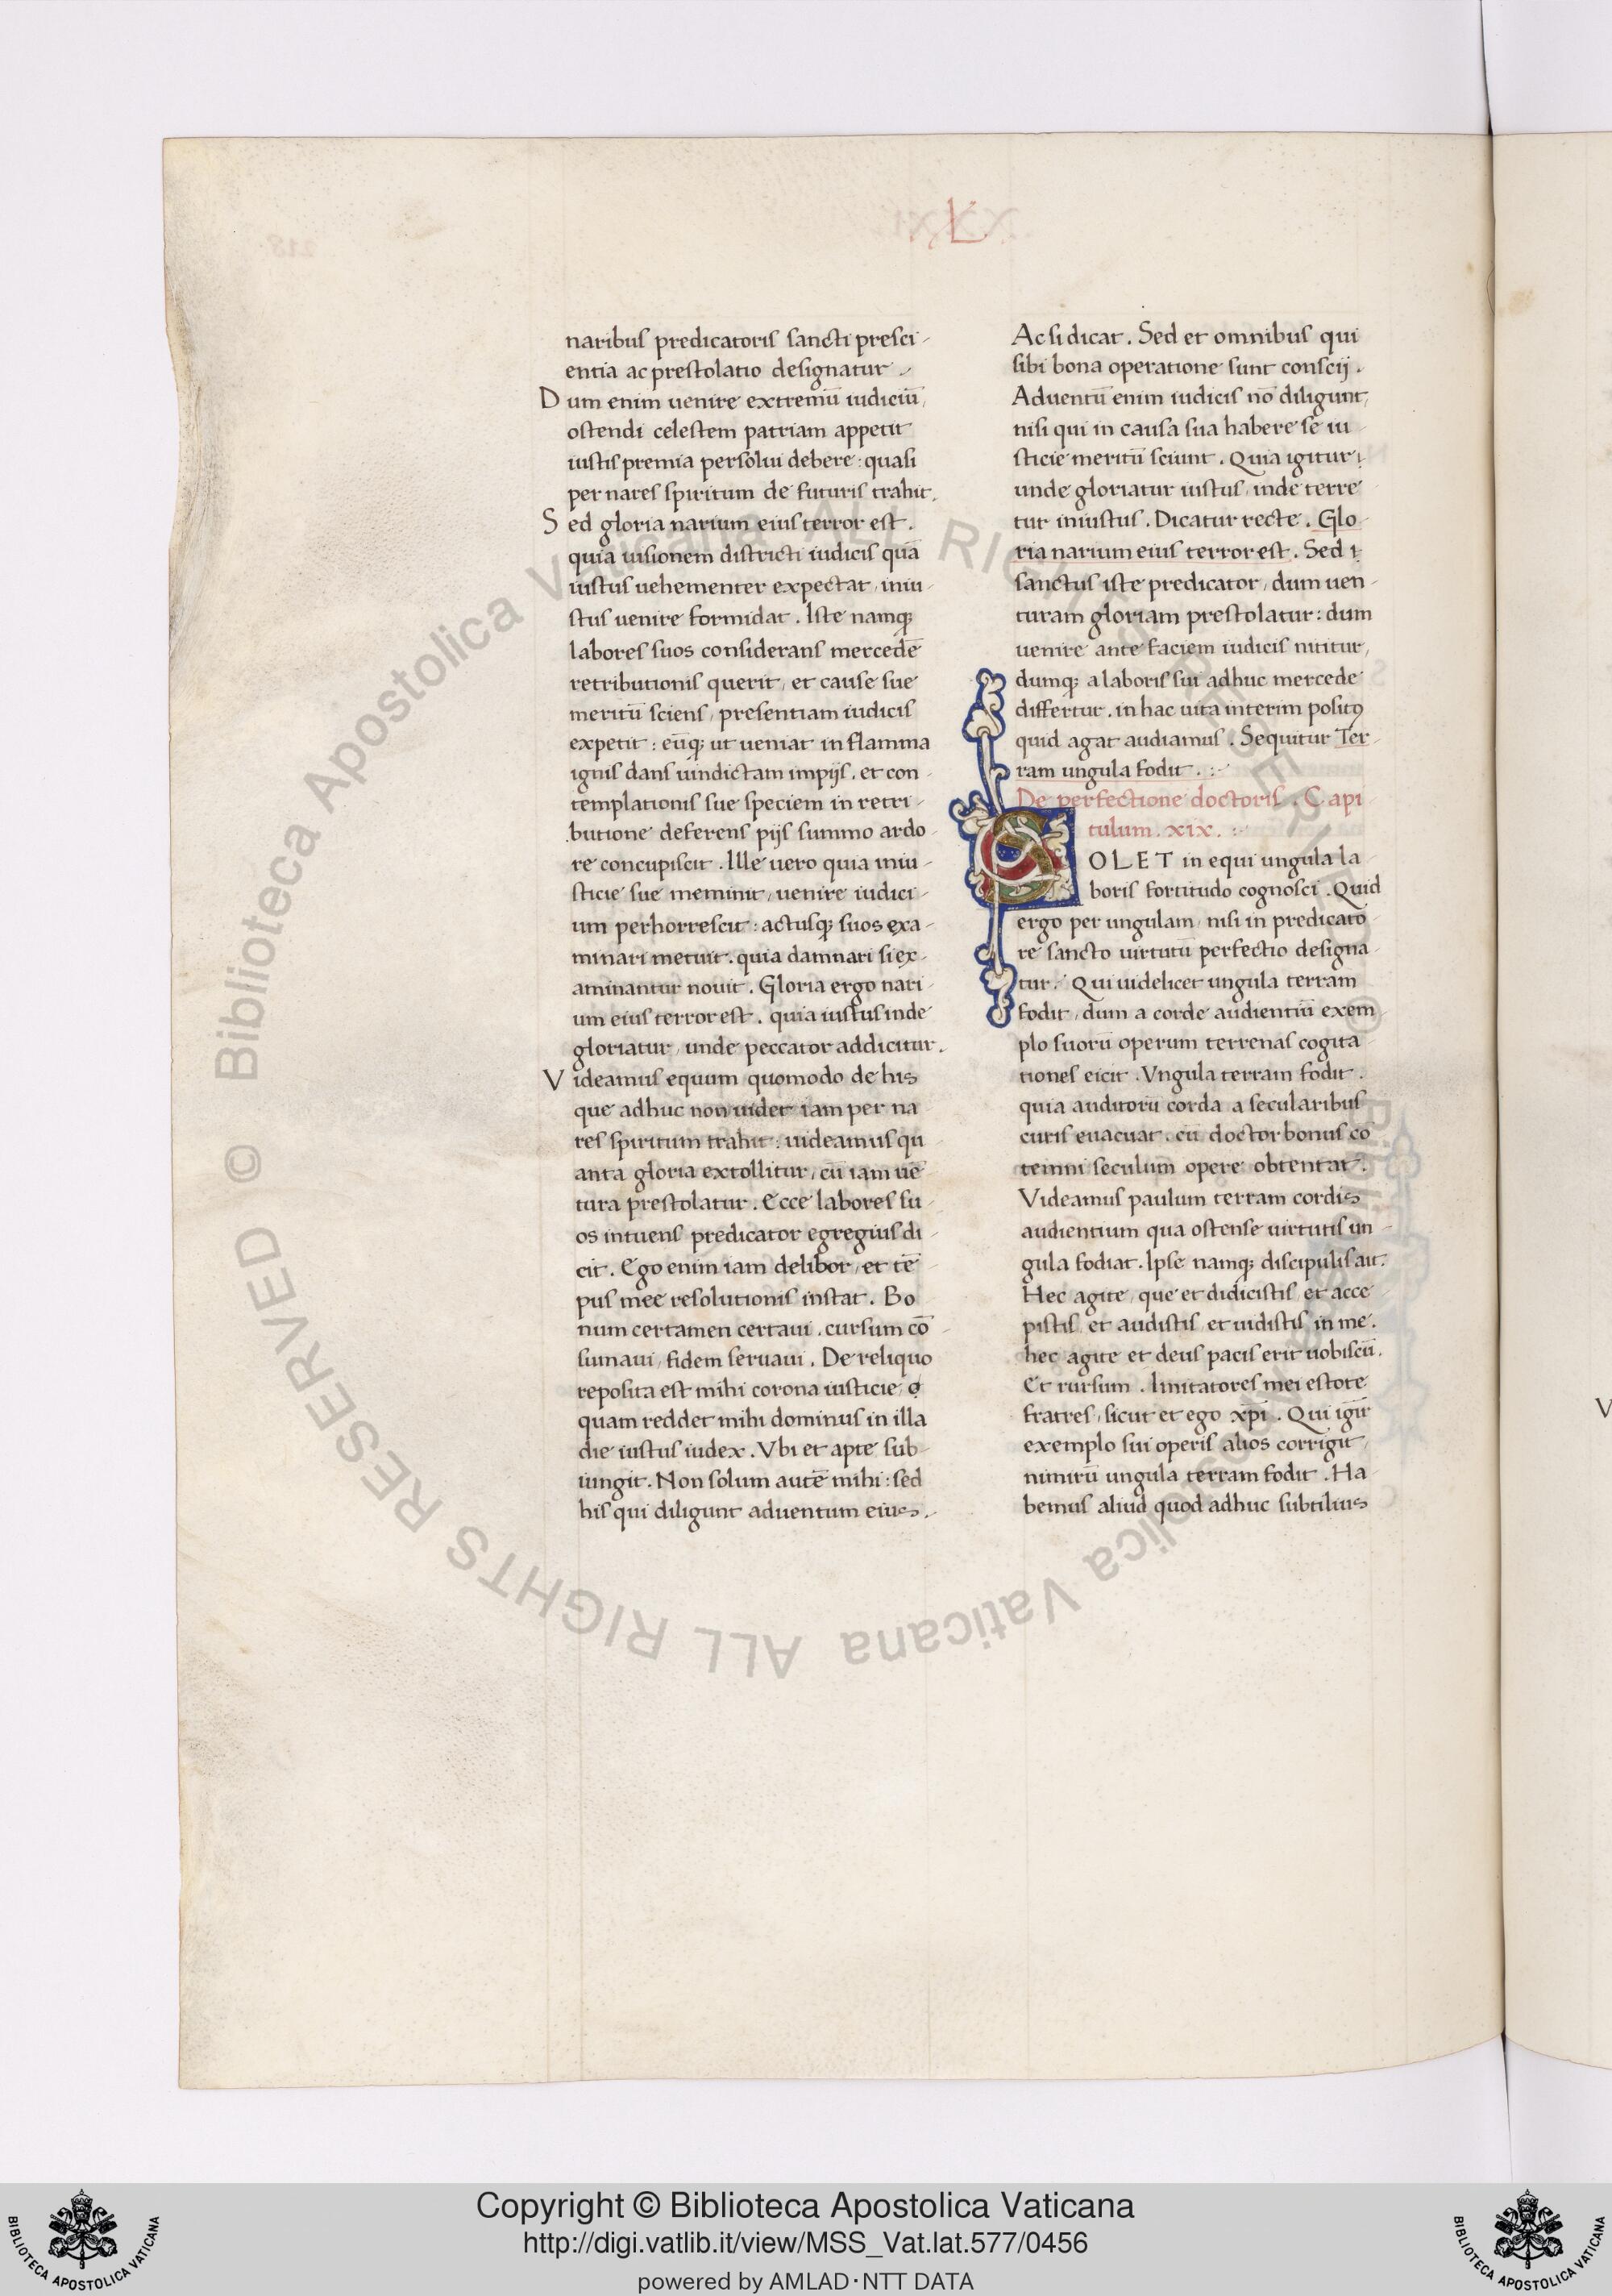 L
naribus predicatoris sancti presci-
entia ac prestolatio designatur.
Dum enim uenire extremū iudiciū,
ostendi celestem patriam appetit
iustis premia persolui debere: quasi
per nares spiritum de futuris trahit.
Sed gloria narium eius terror est.
quia uisionem districti iudicis quā
iustus uehementer expectat, iniu-
stus uenire formidat. Iste namq;
labores suos considerans mercedē
retributionis querit, et cause sue
meritū sciens, presentiam iudicis
expetit: eūq; ut ueniat in flamma
ignis dans uindictam impijs, et con-
templationis sue speciem in retri-
butione deferens pijs summo ardo-
re concupiscit. Ille uero quia iniu-
sticie sue meminit, uenire iudici-
um perhorrescit: actusq; suos exa-
minari metuit. quia damnari si ex-
aminantur nouit. Gloria ergo nari-
um eius terror est. quia iustus inde
gloriatur, unde peccator addicitur.
Videamus equum quomodo de his
que adhuc non uidet iam per na-
res spiritum trahit: uideamus qu-
anta gloria extollitur, cū iam uē-
tura prestolatur. Ecce labores su-
os intuens predicator egregius di-
cit. Ego enim iam delibor, et tē-
pus mee resolutionis instat. Bo-
num certamen certaui. cursum cō-
sumaui, fidem seruaui. De reliquo
reposita est mihi corona iusticie,
quam reddet mihi dominus in illa
die iustus iudex. Vbi et apte sub-
iungit. Non solum autē mihi: sed
his qui diligunt aduentum eius.
Ac si dicat. Sed et omnibus qui
sibi bona operatione sunt conscij.
Aduentū enim iudicis nō diligunt,
nisi qui in causa sua habere se iu-
sticie meritū sciunt. Quia igitur
unde gloriatur iustus, inde terre-
tur iniustus. Dicatur recte. Glo-
ria narium eius terror est. Sed
sanctus iste predicator, dum uen-
turam gloriam prestolatur: dum
uenire ante faciem iudicis nititur,
dumq; a laboris sui adhuc mercede
differtur. in hac uita interim posit9
quid agat audiamus. Sequitur Ter-
ram ungula fodit.
De perfectione doctoris. Capi-
tulum. xix.
SOLET in equi ungula la-
boris fortitudo cognosci. Quid
ergo per ungulam, nisi in predicato-
re sancto uirtutū perfectio designa-
tur. Qui uidelicet ungula terram
fodit, dum a corde audientiū exem-
plo suorū operum terrenas cogita-
tiones eicit. Vngula terram fodit.
quia auditorū corda a secularibus
curis euacuat. cū doctor bonus cō-
temni seculum opere obtentat.
Videamus paulum terram cordis
audientium qua ostense uirtutis un-
gula fodiat. Ipse namq; discipulis ait.
Hec agite, que et didicistis, et acce-
pistis, et audistis, et uidistis in me.
hec agite et deus pacis erit uobiscū.
Et rursum. Imitatores mei estote
fratres, sicut et ego xp̄i. Qui igit̄
exemplo sui operis alios corrigit,
nimirū ungula terram fodit. Ha-
bemus aliud quod adhuc subtilius
V
© Biblioteca Apostolica Vaticana ALL RIGHTS RESERVED
© Biblioteca Apostolica Vaticana ALL RIGHTS RESERVED
Copyright © Biblioteca Apostolica Vaticana
http://digi.vatlib.it/view/MSS_Vat.lat.577/0456
powered by AMLAD·NTT DATA
BIBLIOTECA APOSTOLICA VATICANA
BIBLIOTECA APOSTOLICA VATICANA